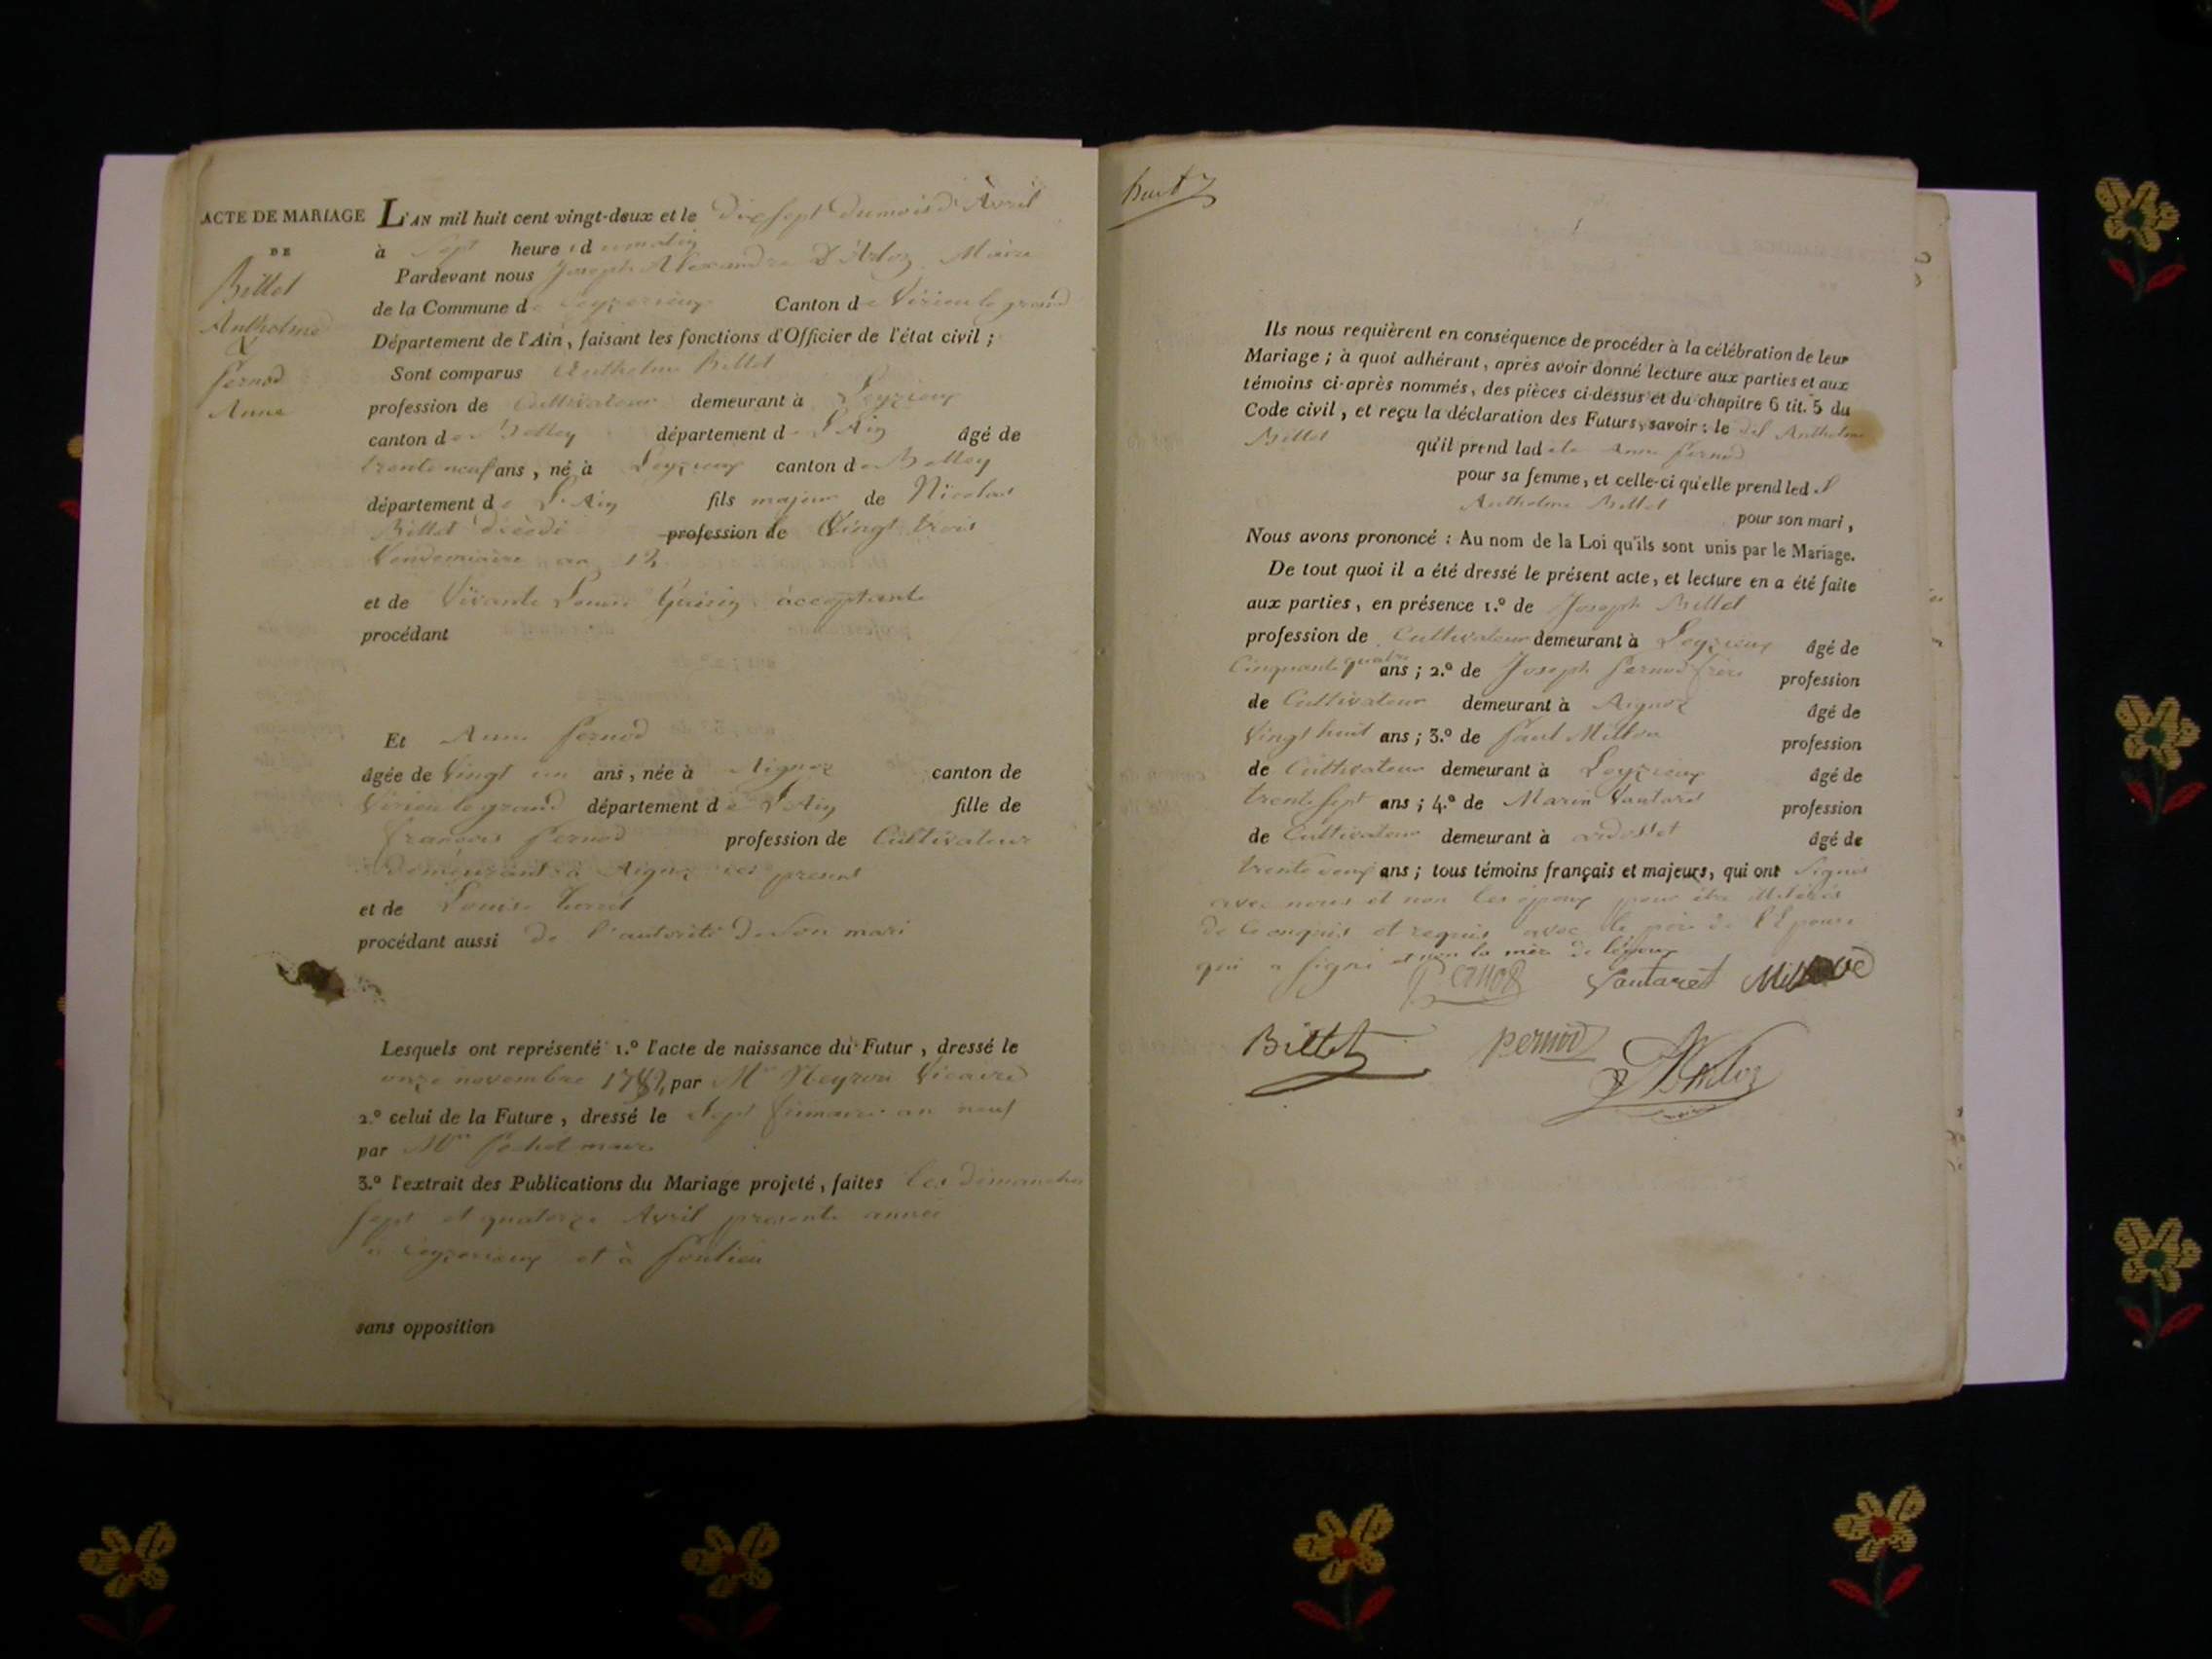 ACTE DE MARIAGE
DE
Billet
Anthelme
X
Pernod
Anne
L'AN mil huit cent vingt-deux et le dix sept du mois d'Avril
à Sept heures du matin
Pardevant nous Joseph Alexandre D'Arloz Maire
de la Commune de Ceyzerieux Canton de Virieu le grand
Département de l'Ain, faisant les fonctions d'Officier de l'état civil ;
Sont comparus Anthelme Billet
profession de Cultivateur demeurant à Leyzieux
canton de Belley département de L'Ain âgé de
trente neuf ans, né à Leyzieux canton de Belley
département de L'Ain fils majeur de Nicolas
Billet décédé profession de Vingt trois
Vendemiaire an 12
et de Vivante Louise acceptante
procédant
Et Anne Pernod
âgée de Vingt un ans, née à Aignoz canton de
Virieu le grand département de L'Ain fille de
françois Pernod profession de Cultivateur
demeurant à Aignoz ici present
et de Louise
procédant aussi de l'autorité de Son mari
Lesquels ont représenté 1.º l'acte de naissance du Futur, dressé le
onze novembre par Mr Neyron Vicaire
2.º celui de la Future, dressé le Sept frimaire an neuf
par Mr Pochet maire
3.º l'extrait des Publications du Mariage projeté, faites les dimanches
Sept et quatorze Avril presente année
à Ceyzerieux et à
sans opposition
huit
Ils nous requièrent en conséquence de procéder à la célébration de leur
Mariage ; à quoi adhérant, après avoir donné lecture aux parties et aux
témoins ci-après nommés, des pièces ci-dessus et du chapitre 6 tit. 5 du
Code civil, et reçu la déclaration des Futurs, savoir : le dit Anthelme
Billet qu'il prend ladite Anne Pernod
pour sa femme, et celle-ci qu'elle prend led.t
Anthelme Billet
pour son mari,
Nous avons prononcé : Au nom de la Loi qu'ils sont unis par le Mariage.
De tout quoi il a été dressé le présent acte, et lecture en a été faite
aux parties, en présence 1.º de Joseph Billet
profession de Cultivateur demeurant à Leyzieux âgé de
Cinquante quatre ans ; 2.º de Joseph Pernod frère profession
de Cultivateur demeurant à Aignoz âgé de
Vingt huit ans ; 3.º de Paul Millou profession
de Cultivateur demeurant à Leyzieux âgé de
trente Sept ans ; 4.º de Marin Vautaret profession
de Cultivateur demeurant à ardosset âgé de
trente deux ans ; tous témoins français et majeurs, qui ont Signés
avec nous et non les époux pour être illitérés
de ce enquis et requis avec le père de l'Epouse
qui a signé et non la mère de l'époux
Pernod Vautaret
Billet pernod D'Arloz